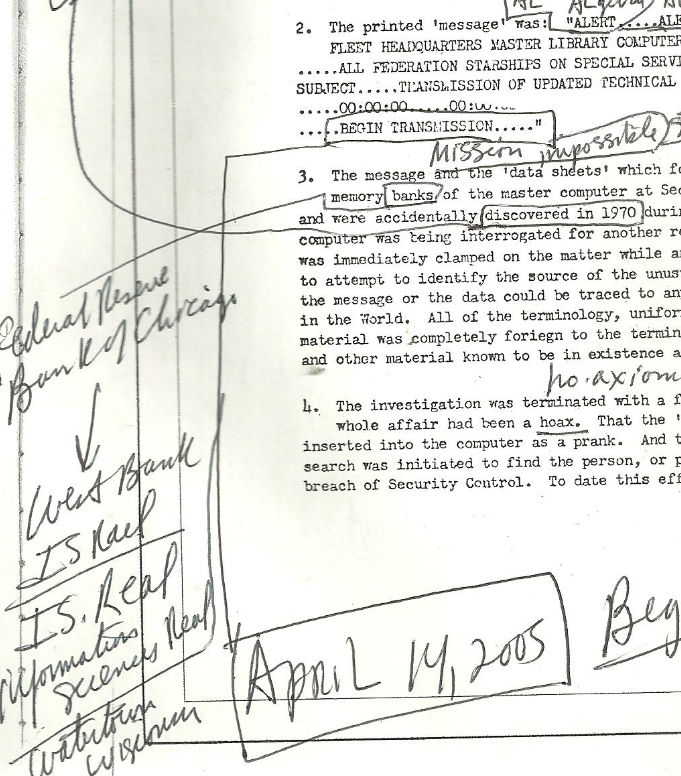 AL Algebra
2. The printed 'message' was: "ALERT.....ALE
FLEET HEADQUARTERS MASTER LIBRARY COMPUTER
.....ALL FEDERATION STARSHIPS ON SPECIAL SERVI
SUBJECT.....TRANSMISSION OF UPDATED TECHNICAL
.....00:00:00.....00:00
.....BEGIN TRANSMISSION....."
Mission impossible
3. The message and the 'data sheets' which fo
memory banks of the master computer at Sec
and were accidentally discovered in 1970 durin
computer was being interrogated for another re
was immediately clamped on the matter while a
to attempt to identify the source of the unus
the message or the data could be traced to an
in the World. All of the terminology, unifor
material was completely foriegn to the termin
and other material known to be in existence a
ho.axiom
4. The investigation was terminated with a f
whole affair had been a hoax. That the '
inserted into the computer as a prank. And t
search was initiated to find the person, or p
breach of Security Control. To date this eff
Federal Reserve
Bank of Chicago
West Bank
ISRael
IS. Real
Information
Sciences Real
Watertown
Wisconsin
April 14, 2005
Beg